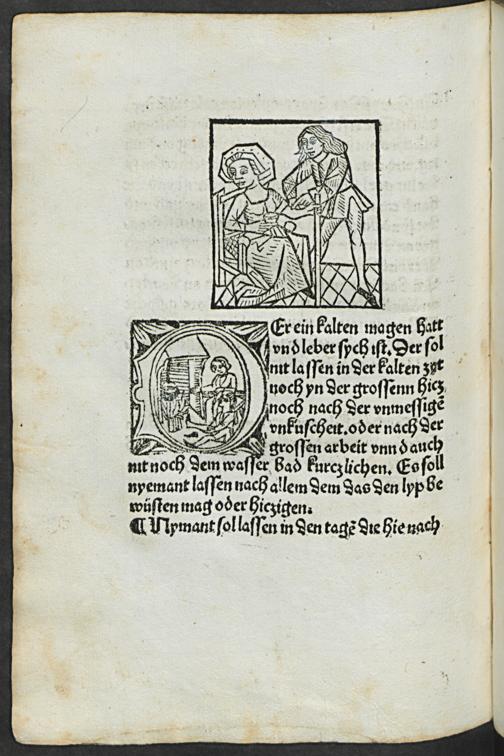 DEr ein kalten magen hatt
vnd leber sych ist. Der sol
nit lassen in der kalten zyt
noch yn der grossenn hicz
noch nach der vnmessigē
vnkuscheit. oder nach der
grossen arbeit vnnd auch
nit noch dem wasser bad kurczlichen. Es soll
nyemant lassen nach allem dem das den lyp be
wüsten mag oder hiczigen.
¶ Nymant sol lassen in den tagē die hie nach